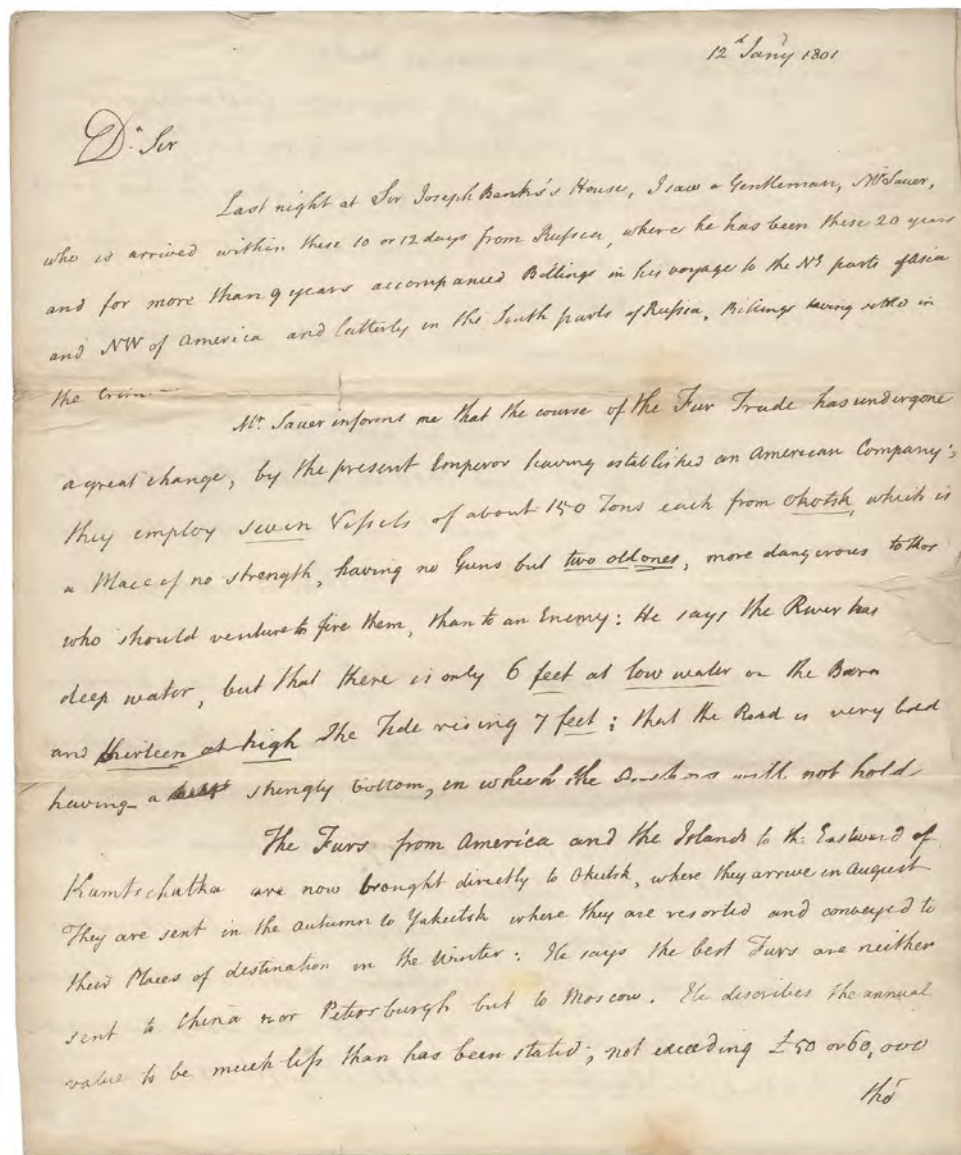 12th Jany 1801
Dr Sir
Last night at Sir Joseph Banks's House, I saw a Gentleman, Mr Sauer,
who is arrived within these 10 or 12 days from Russia, where he has been these 20 years
and for more than 9 years accompanied Billings in his voyage to the Nn parts of Asia
and NW of America and latterly in the South parts of Russia, Billings having settled in
the Crim.—
Mr. Sauer informs me that the course of the Fur Trade has undergone
a great change, by the present Emperor having established an American Company;
they employ seven Vessels of about 150 Tons each from Okotsk, which is
a Place of no strength, having no Guns but two old ones, more dangerous to those
who should venture to fire them, than to an Enemy: He says the River has
deep water, but that there is only 6 feet at low water on the Barr
and thirteen at high The Tide rising 7 feet; that the Road is very bad
having a shingly bottom, in which the will not hold
The Furs from America and the Islands to the Eastward of
Kamtschatka are now brought directly to Okutsk, where they arrive in August
They are sent in the autumn to Yakutsk where they are resorted and conveyed to
their Places of destination in the Winter: He says the best Furs are neither
sent to China nor Petersburgh but to Moscow. He describes the annual
value to be much less than has been stated; not exceeding £50 or 60,000
tho'